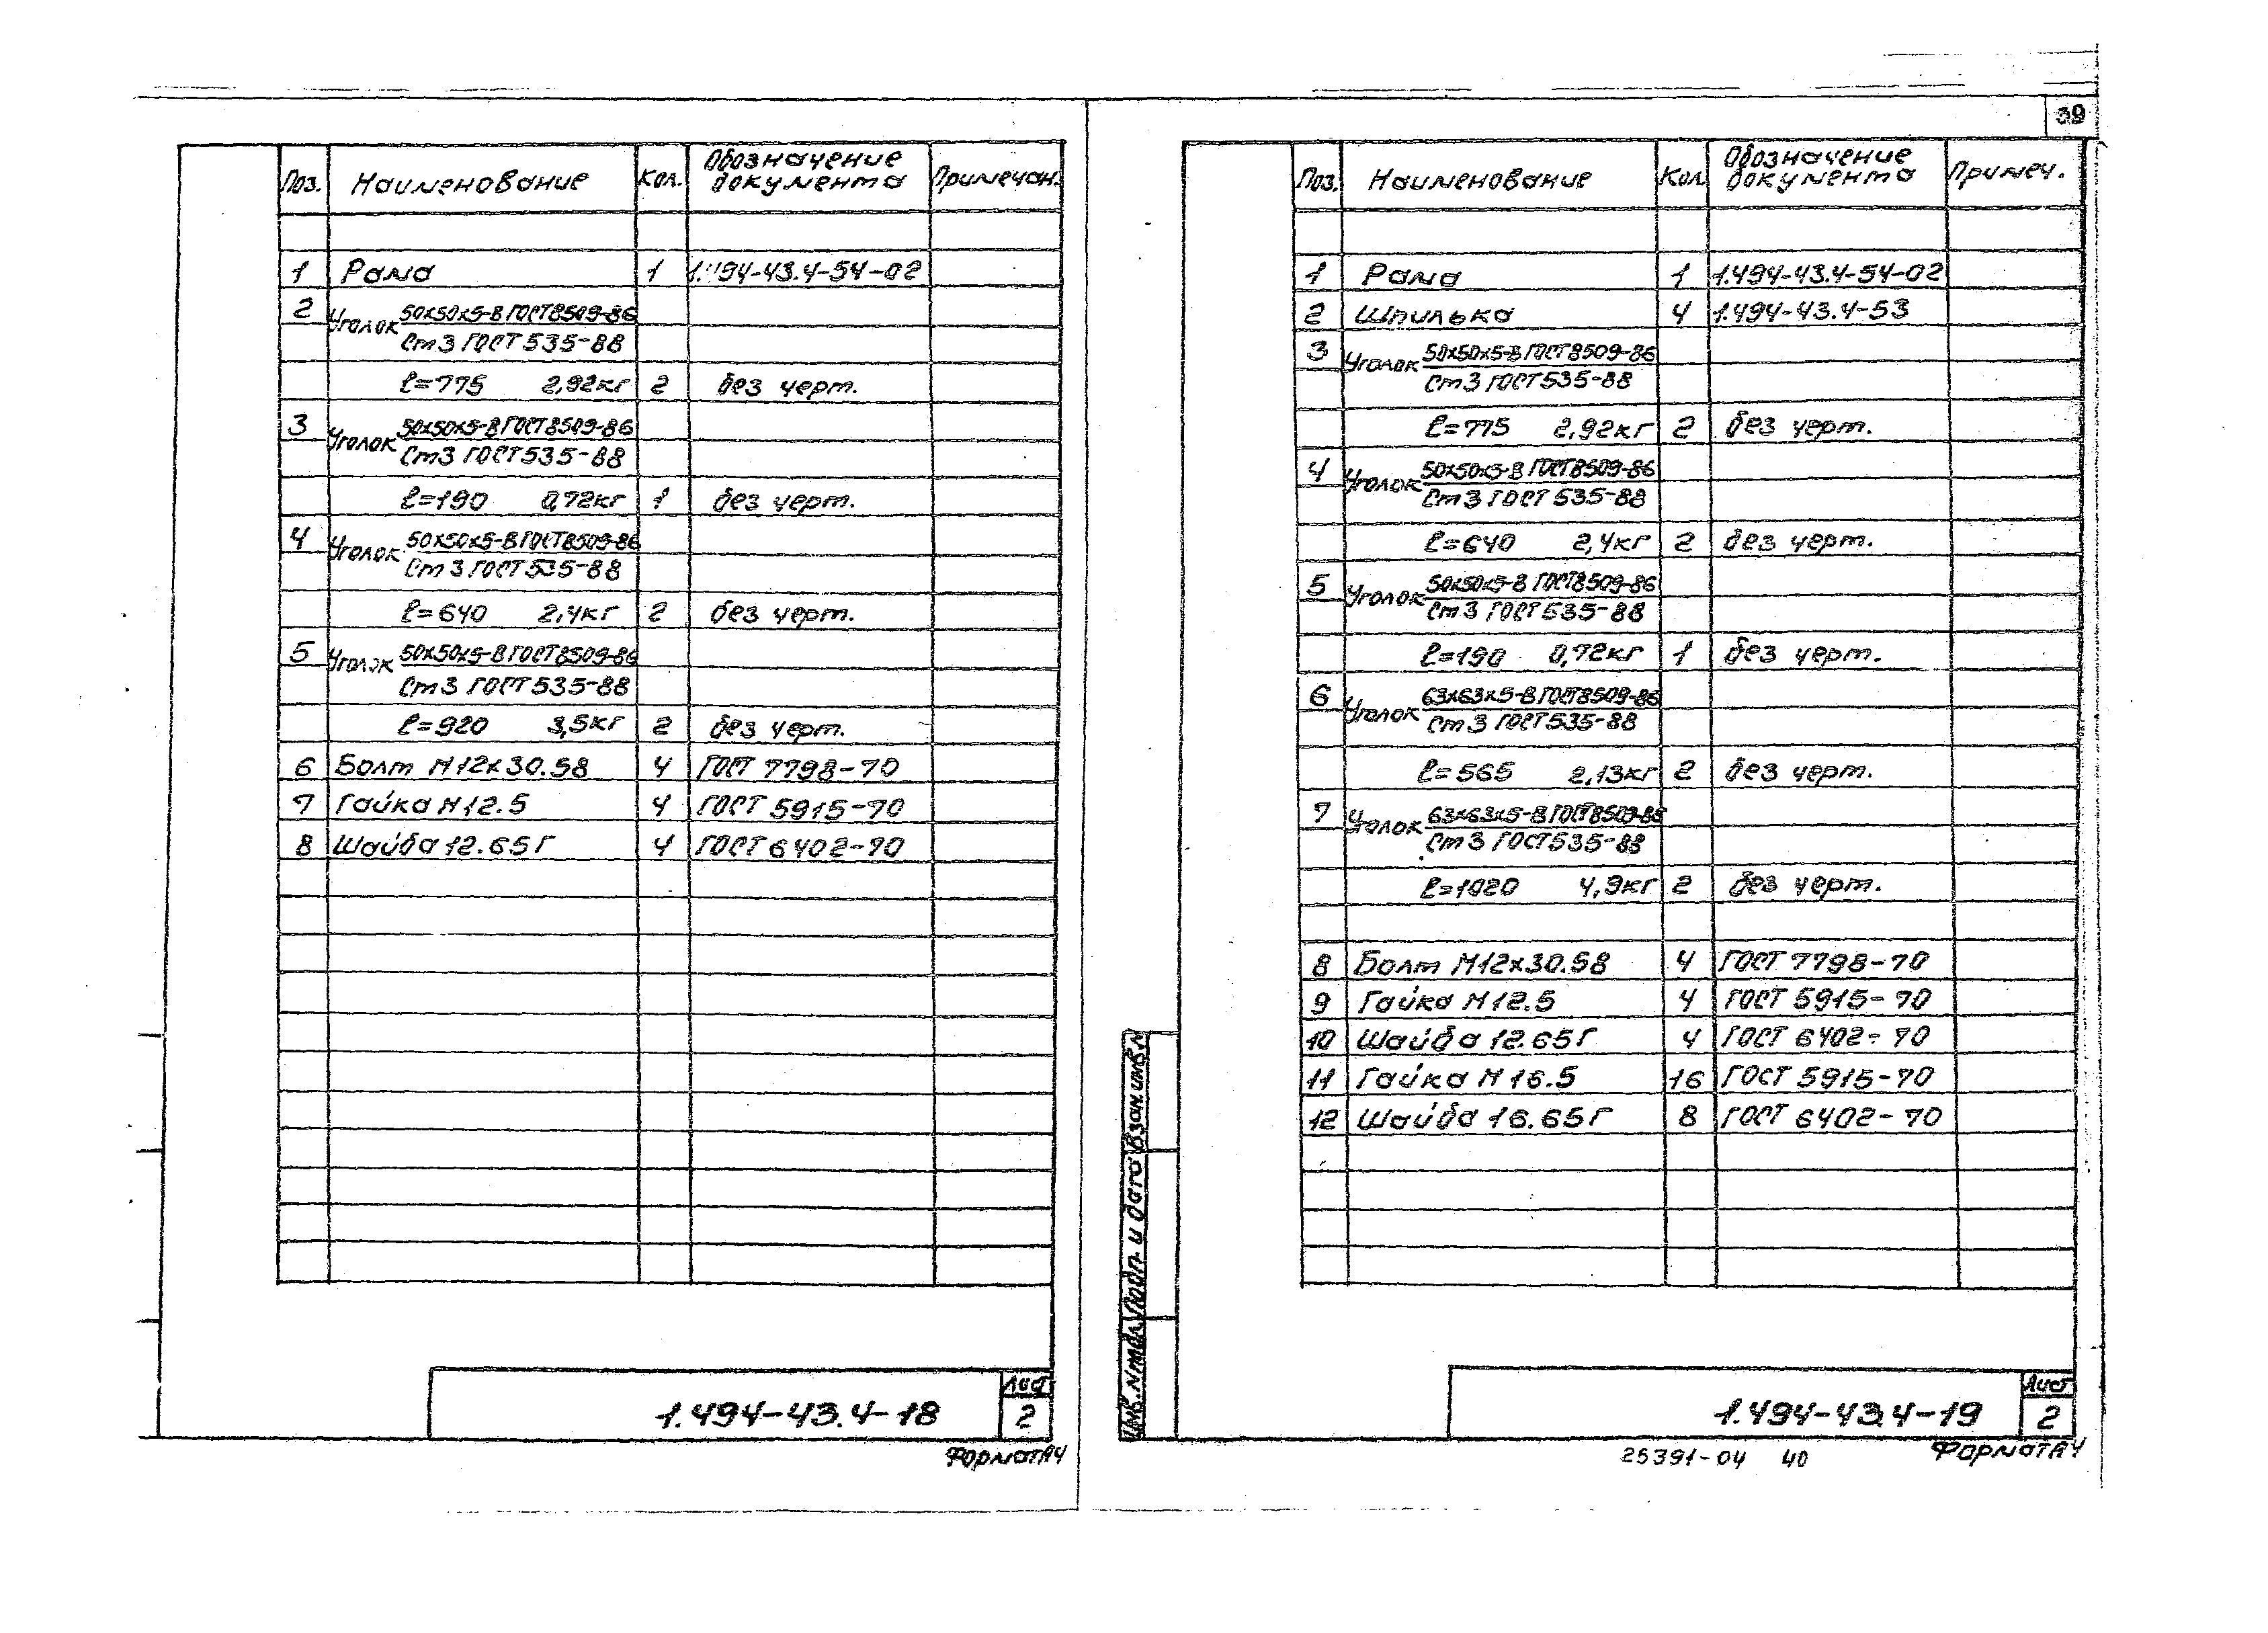 Поз. Наименование Кол. Обозначение документа Примечан.
1 Рама 1 1.494-43.4-54-02
2 Уголок 50х50х5-В ГОСТ 8509-86
Ст3 ГОСТ 535-88
ℓ=775 2,92кг 2 без черт.
3 Уголок 50х50х5-В ГОСТ 8509-86
Ст3 ГОСТ 535-88
ℓ=190 0,72кг 1 без черт.
4 Уголок 50х50х5-В ГОСТ 8509-86
Ст3 ГОСТ 535-88
ℓ=640 2,4кг 2 без черт.
5 Уголок 50х50х5-В ГОСТ 8509-86
Ст3 ГОСТ 535-88
ℓ=920 3,5кг 2 без черт.
6 Болт М12х30.58 4 ГОСТ 7798-70
7 Гайка М12.5 4 ГОСТ 5915-70
8 Шайба 12.65Г 4 ГОСТ 6402-70
1.494-43.4-18
Лист
2
Формат А4
39
Поз. Наименование Кол. Обозначение документа Примеч.
1 Рама 1 1.494-43.4-54-02
2 Шпилька 4 1.494-43.4-53
3 Уголок 50х50х5-В ГОСТ 8509-86
Ст3 ГОСТ 535-88
ℓ=775 2,92кг 2 без черт.
4 Уголок 50х50х5-В ГОСТ 8509-86
Ст3 ГОСТ 535-88
ℓ=640 2,4кг 2 без черт.
5 Уголок 50х50х5-В ГОСТ 8509-86
Ст3 ГОСТ 535-88
ℓ=190 0,72кг 1 без черт.
6 Уголок 63х63х5-В ГОСТ 8509-86
Ст3 ГОСТ 535-88
ℓ=565 2,13кг 2 без черт.
7 Уголок 63х63х5-В ГОСТ 8509-86
Ст3 ГОСТ 535-88
ℓ=1020 4,9кг 2 без черт.
8 Болт М12х30.58 4 ГОСТ 7798-70
9 Гайка М12.5 4 ГОСТ 5915-70
10 Шайба 12.65Г 4 ГОСТ 6402-70
11 Гайка М16.5 16 ГОСТ 5915-70
12 Шайба 16.65Г 8 ГОСТ 6402-70
Инв.Nподл. Подп. и дата Взам.инв.N
1.494-43.4-19
Лист
2
25391-04 40
Формат А4